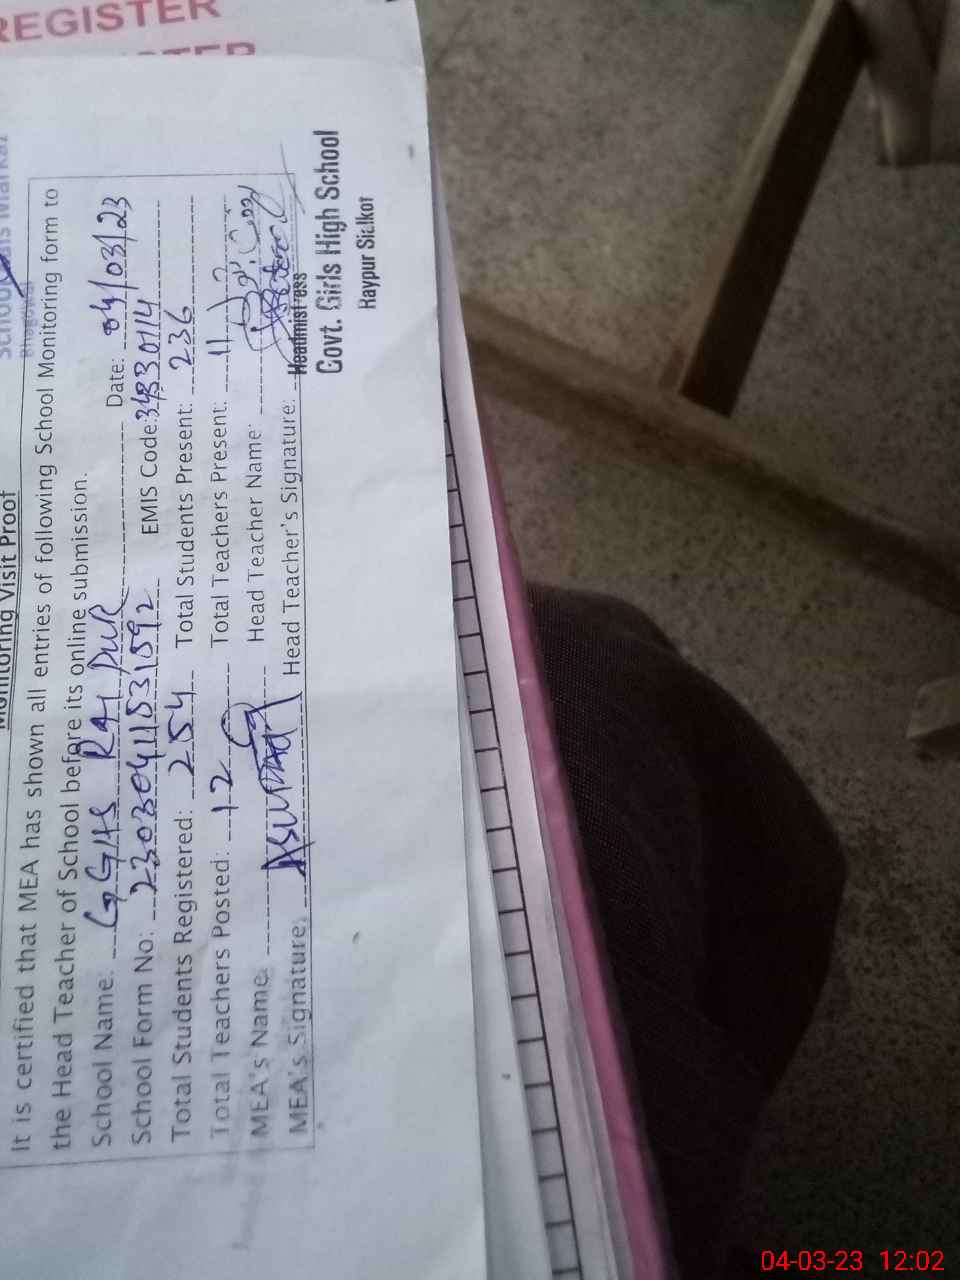 REGISTER
Monitoring Visit Proof
It is certified that MEA has shown all entries of following School Monitoring form to
the Head Teacher of School before its online submission.
School Name: GGHS Raypur Date: 04/03/23
School Form No: EMIS Code: 34830114
Total Students Registered: 254 Total Students Present: 236
Total Teachers Posted: 12 Total Teachers Present: 11
MEA's Name: Head Teacher Name:
MEA's Signature: Head Teacher's Signature:
Headmistress
Govt. Girls High School
Raypur Sialkot
04-03-23 12:02